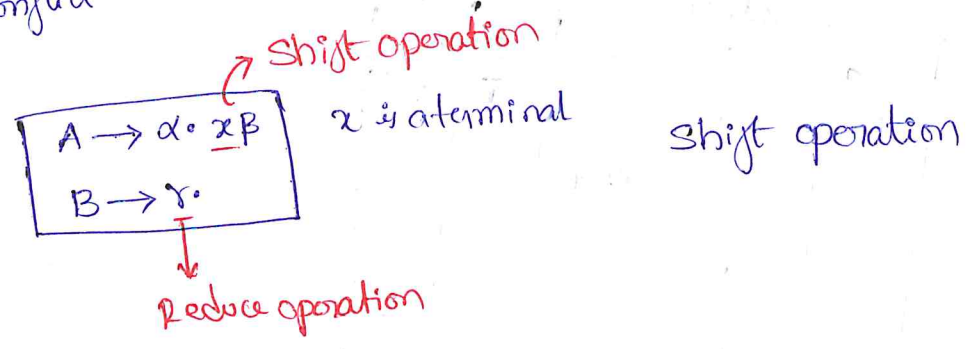 Shift operation
A → α. xβ x is a terminal shift operation
B → γ.
Reduce operation